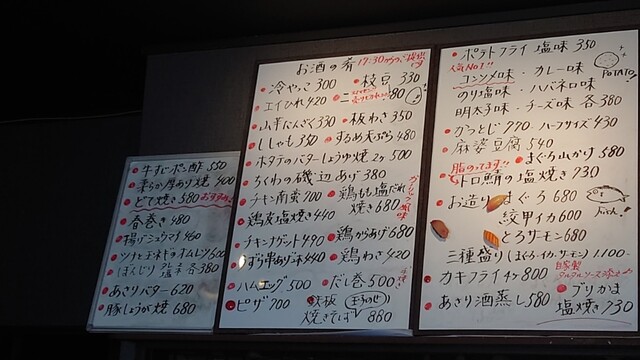 牛すじポン酢 550
柔らか厚あり焼 400
とて焼き 580 おすすめ!
春巻き 480
揚げシュウマイ 460
ツナと玉ネギのオムレツ 600
ぼんじり 塩ネギ 380
あさりバター 620
豚しょうが焼 680
お酒の肴 17:30からのご提供です
冷やっこ 300
枝豆 330
エイひれ 420
山芋たんざく 330
板わさ 350
ししゃも 350
するめ天ぷら 480
ホタテのバターしょうゆ焼 2ヶ 500
ちくわの磯辺あげ 380
チキン南蛮 700
鶏もも塩だれ焼き 680
ガーリック風味
鶏皮塩焼き 440
チキンナゲット 490
鶏からあげ 680
うずら串フライ 440
鶏わさ 420
ハムエッグ 500
だし巻 500
ピザ 700
鉄板焼きそば 玉子のせ 880
ポテトフライ 塩味 350
人気No1!!
コンソメ味・カレー味
のり塩味・ハバネロ味
明太子味・チーズ味 各380
POTATO
かつとじ 770・ハーフサイズ 430
麻婆豆腐 540
まぐろ山かけ 580
脂のってます!!
トロ鯖の塩焼き 730
お造り まぐろ 680
紋甲イカ 600
とろサーモン 680
Fish!
三種盛り(まぐろ・イカ・サーモン) 1,100-
カキフライ 4ヶ 800
自家製タルタルソース
あさり酒蒸し 580
ブリかま塩焼き 730